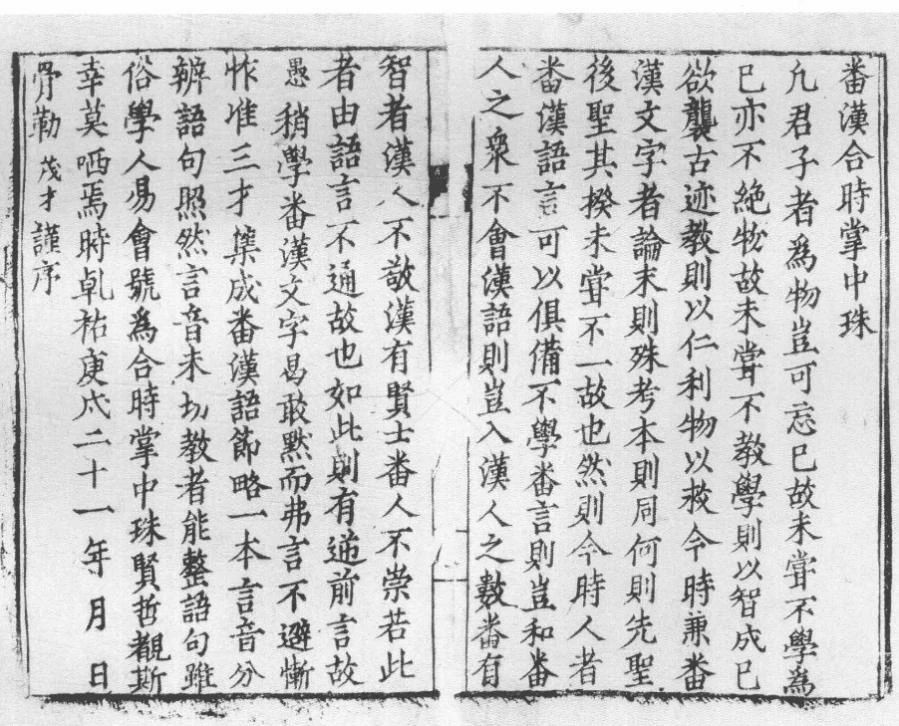 番漢合時掌中珠
凢君子者為物豈可忘己故未甞不學為
己亦不絶物故未甞不教學則以智成己
欲襲古迹教則以仁利物以救今時兼番
漢文字者論末則殊考本則同何則先聖
後聖其揆未甞不一故也然則今時人者
番漢語言可以俱備不學番言則豈和番
人之衆不會漢語則豈入漢人之數番有
智者漢人不敬漢有賢士番人不崇若此
者由語言不通故也如此則有逆前言故
愚稍學番漢文字曷敢默而弗言不避慚
怍准三才集成番漢語節略一本言音分
辨語句照然言音未切教者能整語句雖
俗學人易會號為合時掌中珠賢哲覩斯
幸莫哂焉時乹祐庚戌二十一年月日
骨勒茂才謹序